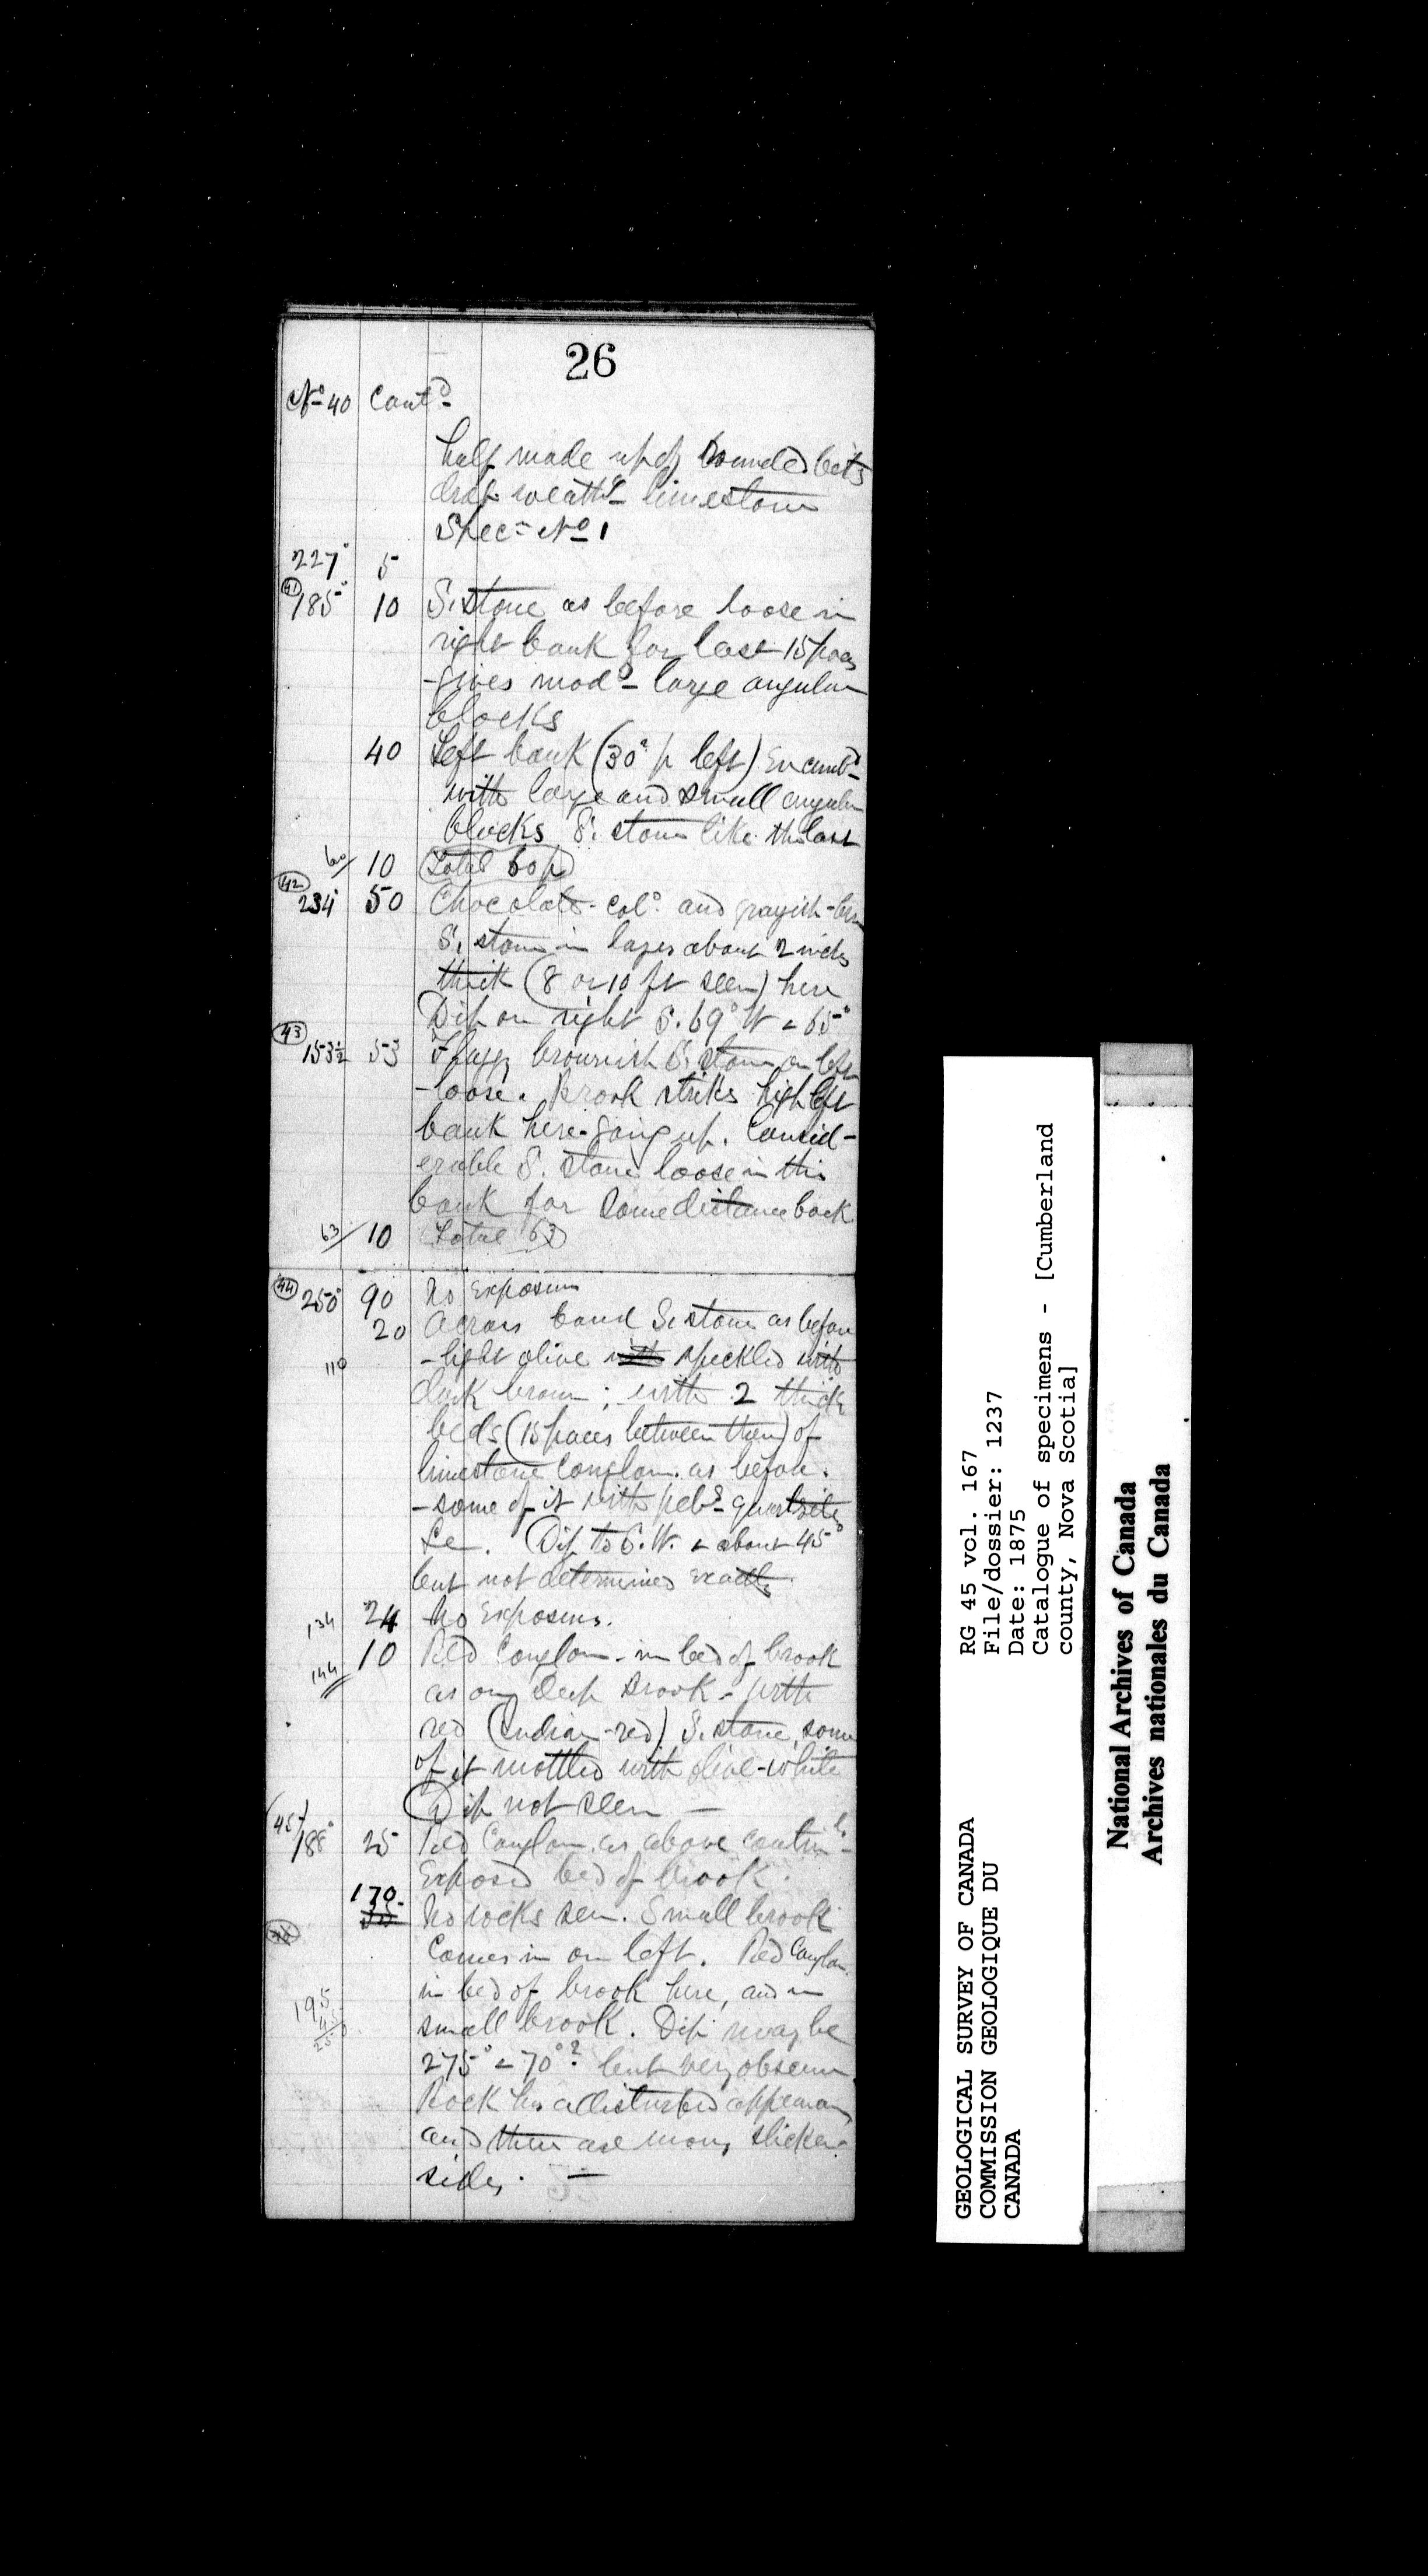 26
No 40 Contd
half made up of rounded bits
drab weathg limestone
Spec= No 1
227° 5
(41) 185° 10 S. stone as before loose in
right bank for last 15 paces
-gives modr large angular
blocks
40 Left bank (30 p left) Encumbd
with large and small angular
blocks S. stone like the last
60/ 10 (Total 60 p)
(42) 234° 50 Chocolate-cold and grayish-
S. stone in layers about 2 inches
thick (8 or 10 ft seen) here
Dip on right S. 69° W < 65°
(43) 153½ 53 Flaggy brownish S. stone on left
-loose. Brook strikes high left
bank here going up. Consid-
erable S. stone loose in this
bank for some distance back
63/ 10 (Total 63)
(44) 250° 90 No Exposure
20 Across band S. stone as before
110 -light olive with speckled with
dark brown; with 2 thick
beds (15 paces between them) of
limestone conglom. as before.
-some of it with pebs quartzite
&c. Dip to S.W. < about 45°
but not determined exactly.
134 24 No Exposure.
144 10 Red Conglom - in bed of brook
as on Deep Brook - with
red (Indian-red) S. stone, some
of it mottled with olive-white
Dip not seen —
(45) 188° 25 Red Conglom. as above
Exposed bed of brook.
170 No rocks seen. Small brook
comes in on left. Red Conglom.
in bed of brook here, and in
195 small brook. Dip may be
275° < 70°? but very obscure
Rock has a disturbed appearance
and there are many slicken-
sides. —
GEOLOGICAL SURVEY OF CANADA
COMMISSION GEOLOGIQUE DU
CANADA
RG 45 vol. 167
File/dossier: 1237
Date: 1875
Catalogue of specimens - [Cumberland
county, Nova Scotia]
National Archives of Canada
Archives nationales du Canada